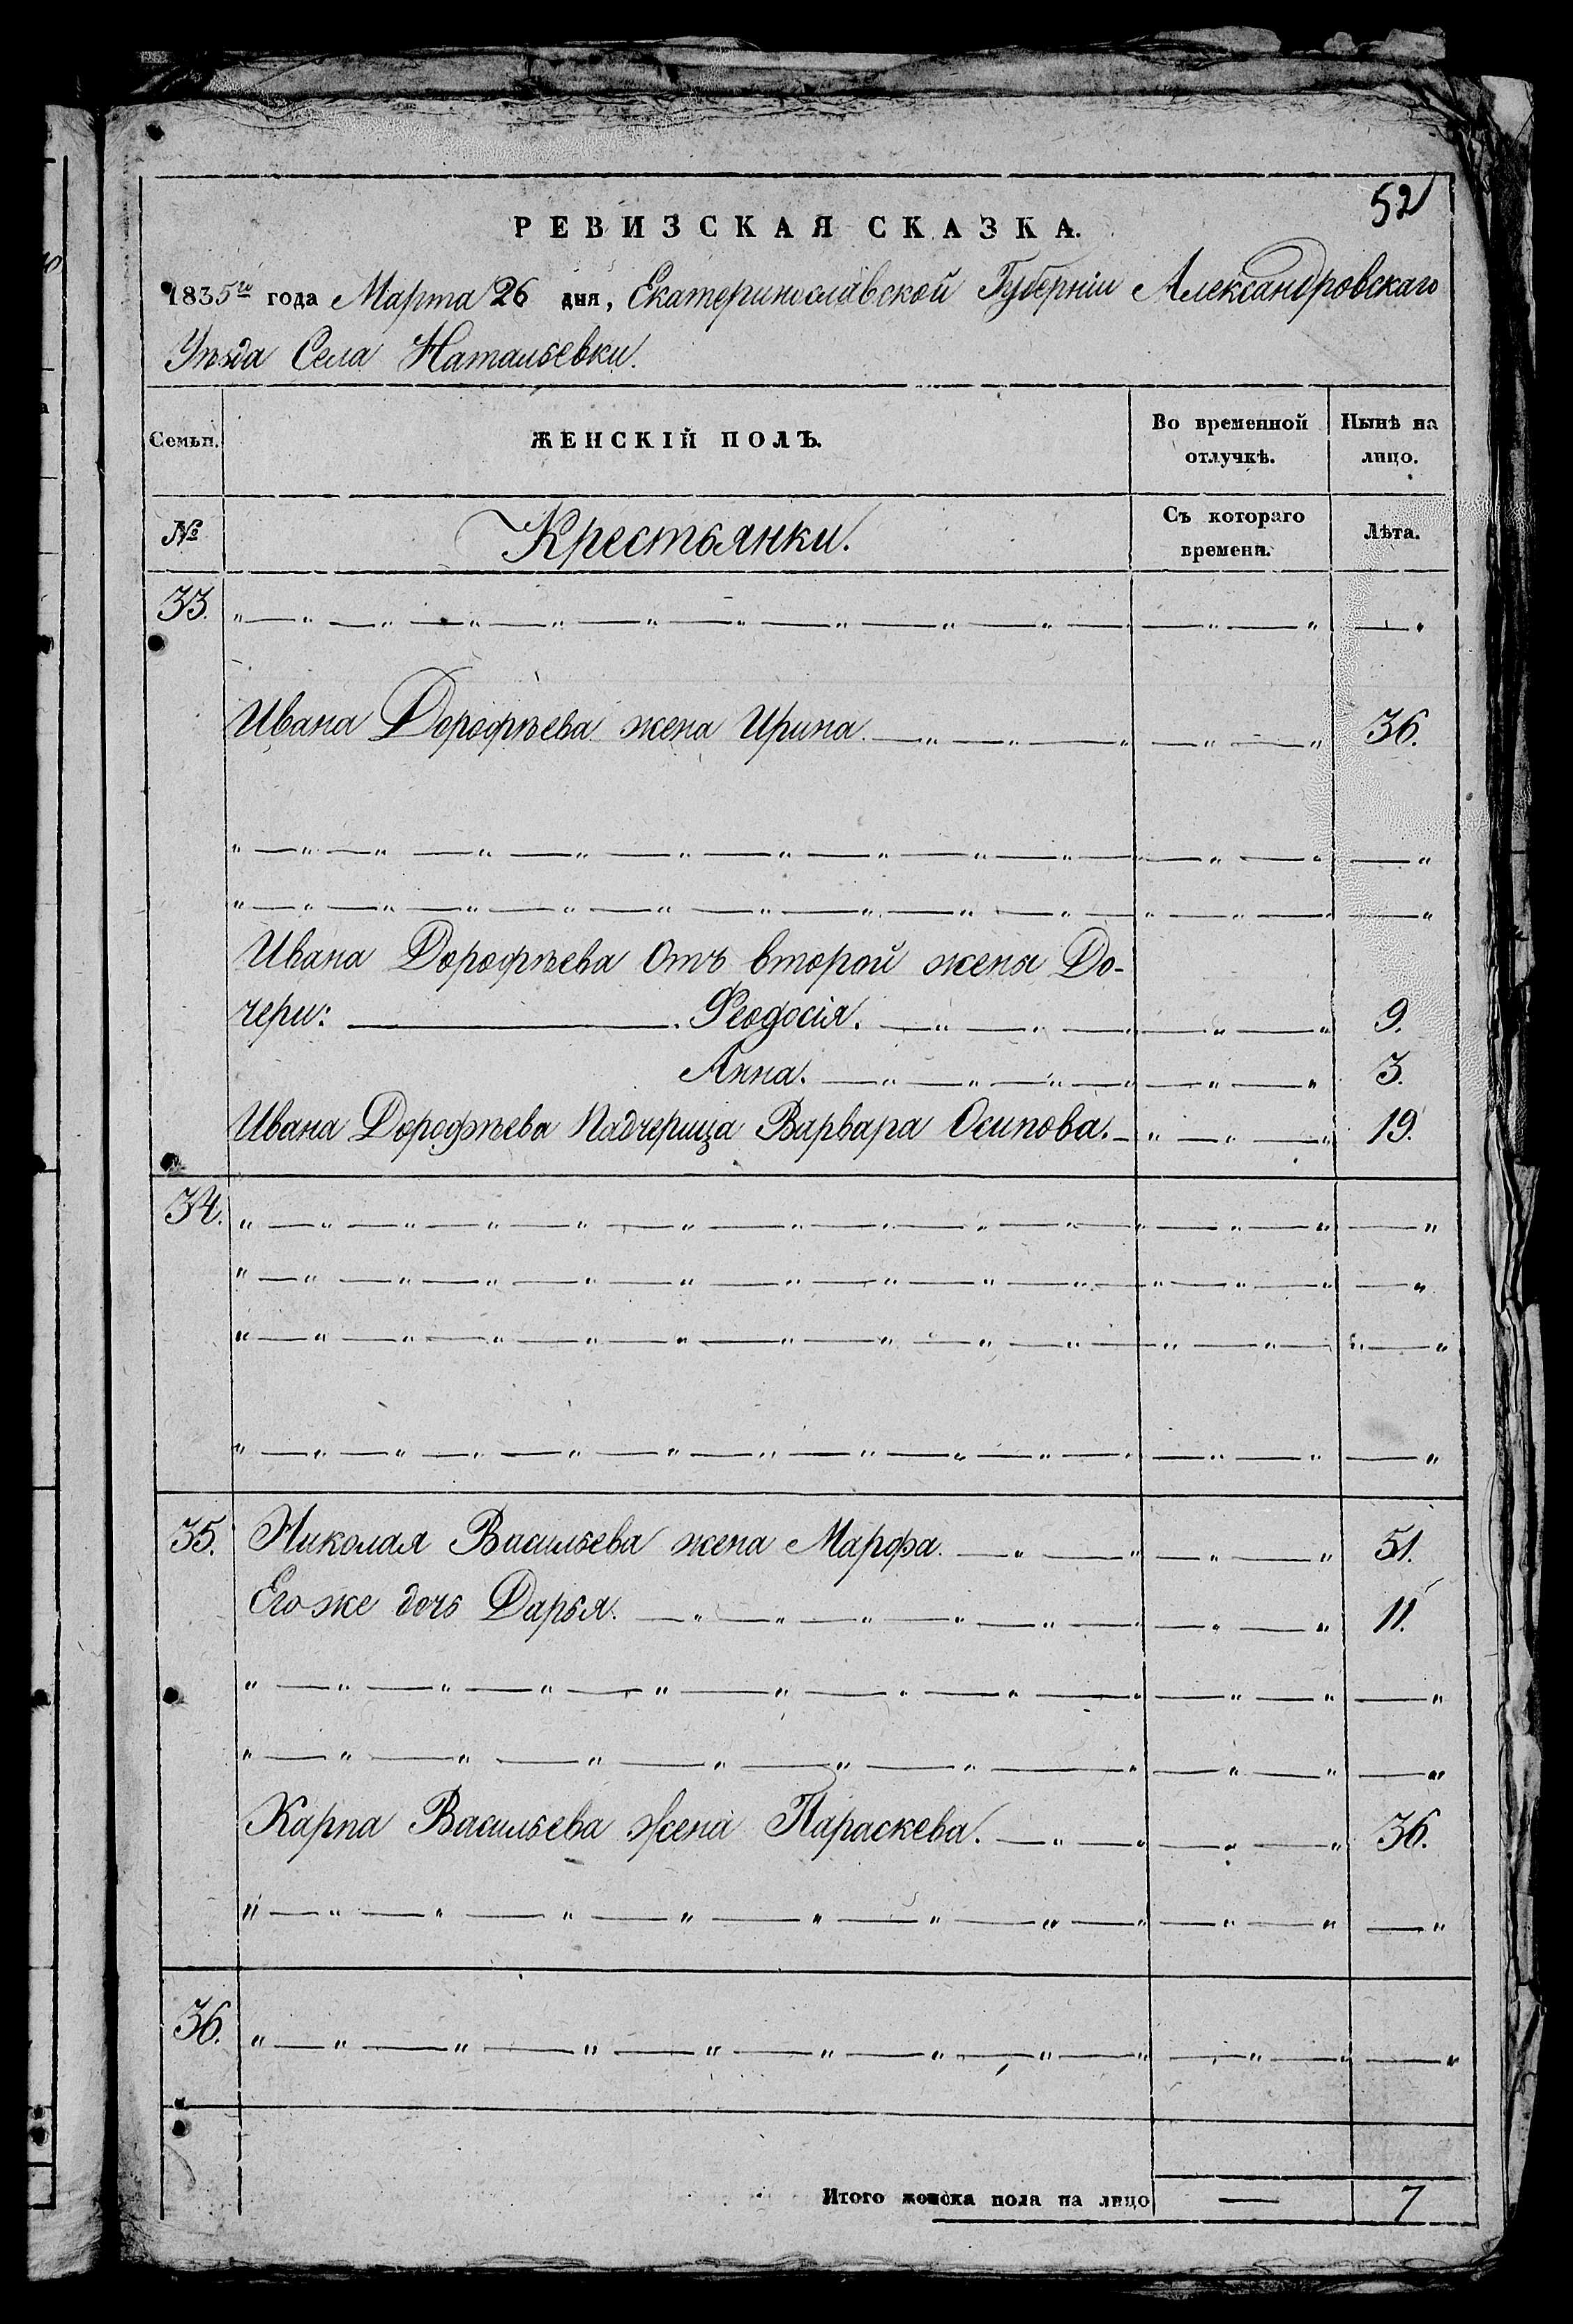 52
РЕВИЗСКАЯ СКАЗКА.
1835го года Марта 26 дня, Екатеринославской Губерніи Александровскаго
Уѣзда Села Натальевки.
Семьи. ЖЕНСКІЙ ПОЛЪ. Во временной отлучкѣ. Нынѣ на лицо.
№ Крестьянки. Съ котораго времени. Лѣта.
33.
Ивана Дорофѣева жена Ирина. 36.
Ивана Дорофѣева Отъ второй жены До-
чери: Феодосія. 9.
Анна. 3.
Ивана Дорофѣева Падчерица Варвара Осипова. 19.
34.
35. Николая Васильева жена Марфа. 51.
Его же дочь Дарья. 11.
Карпа Васильева жена Параскева. 36.
36.
Итого женска пола на лицо — 7